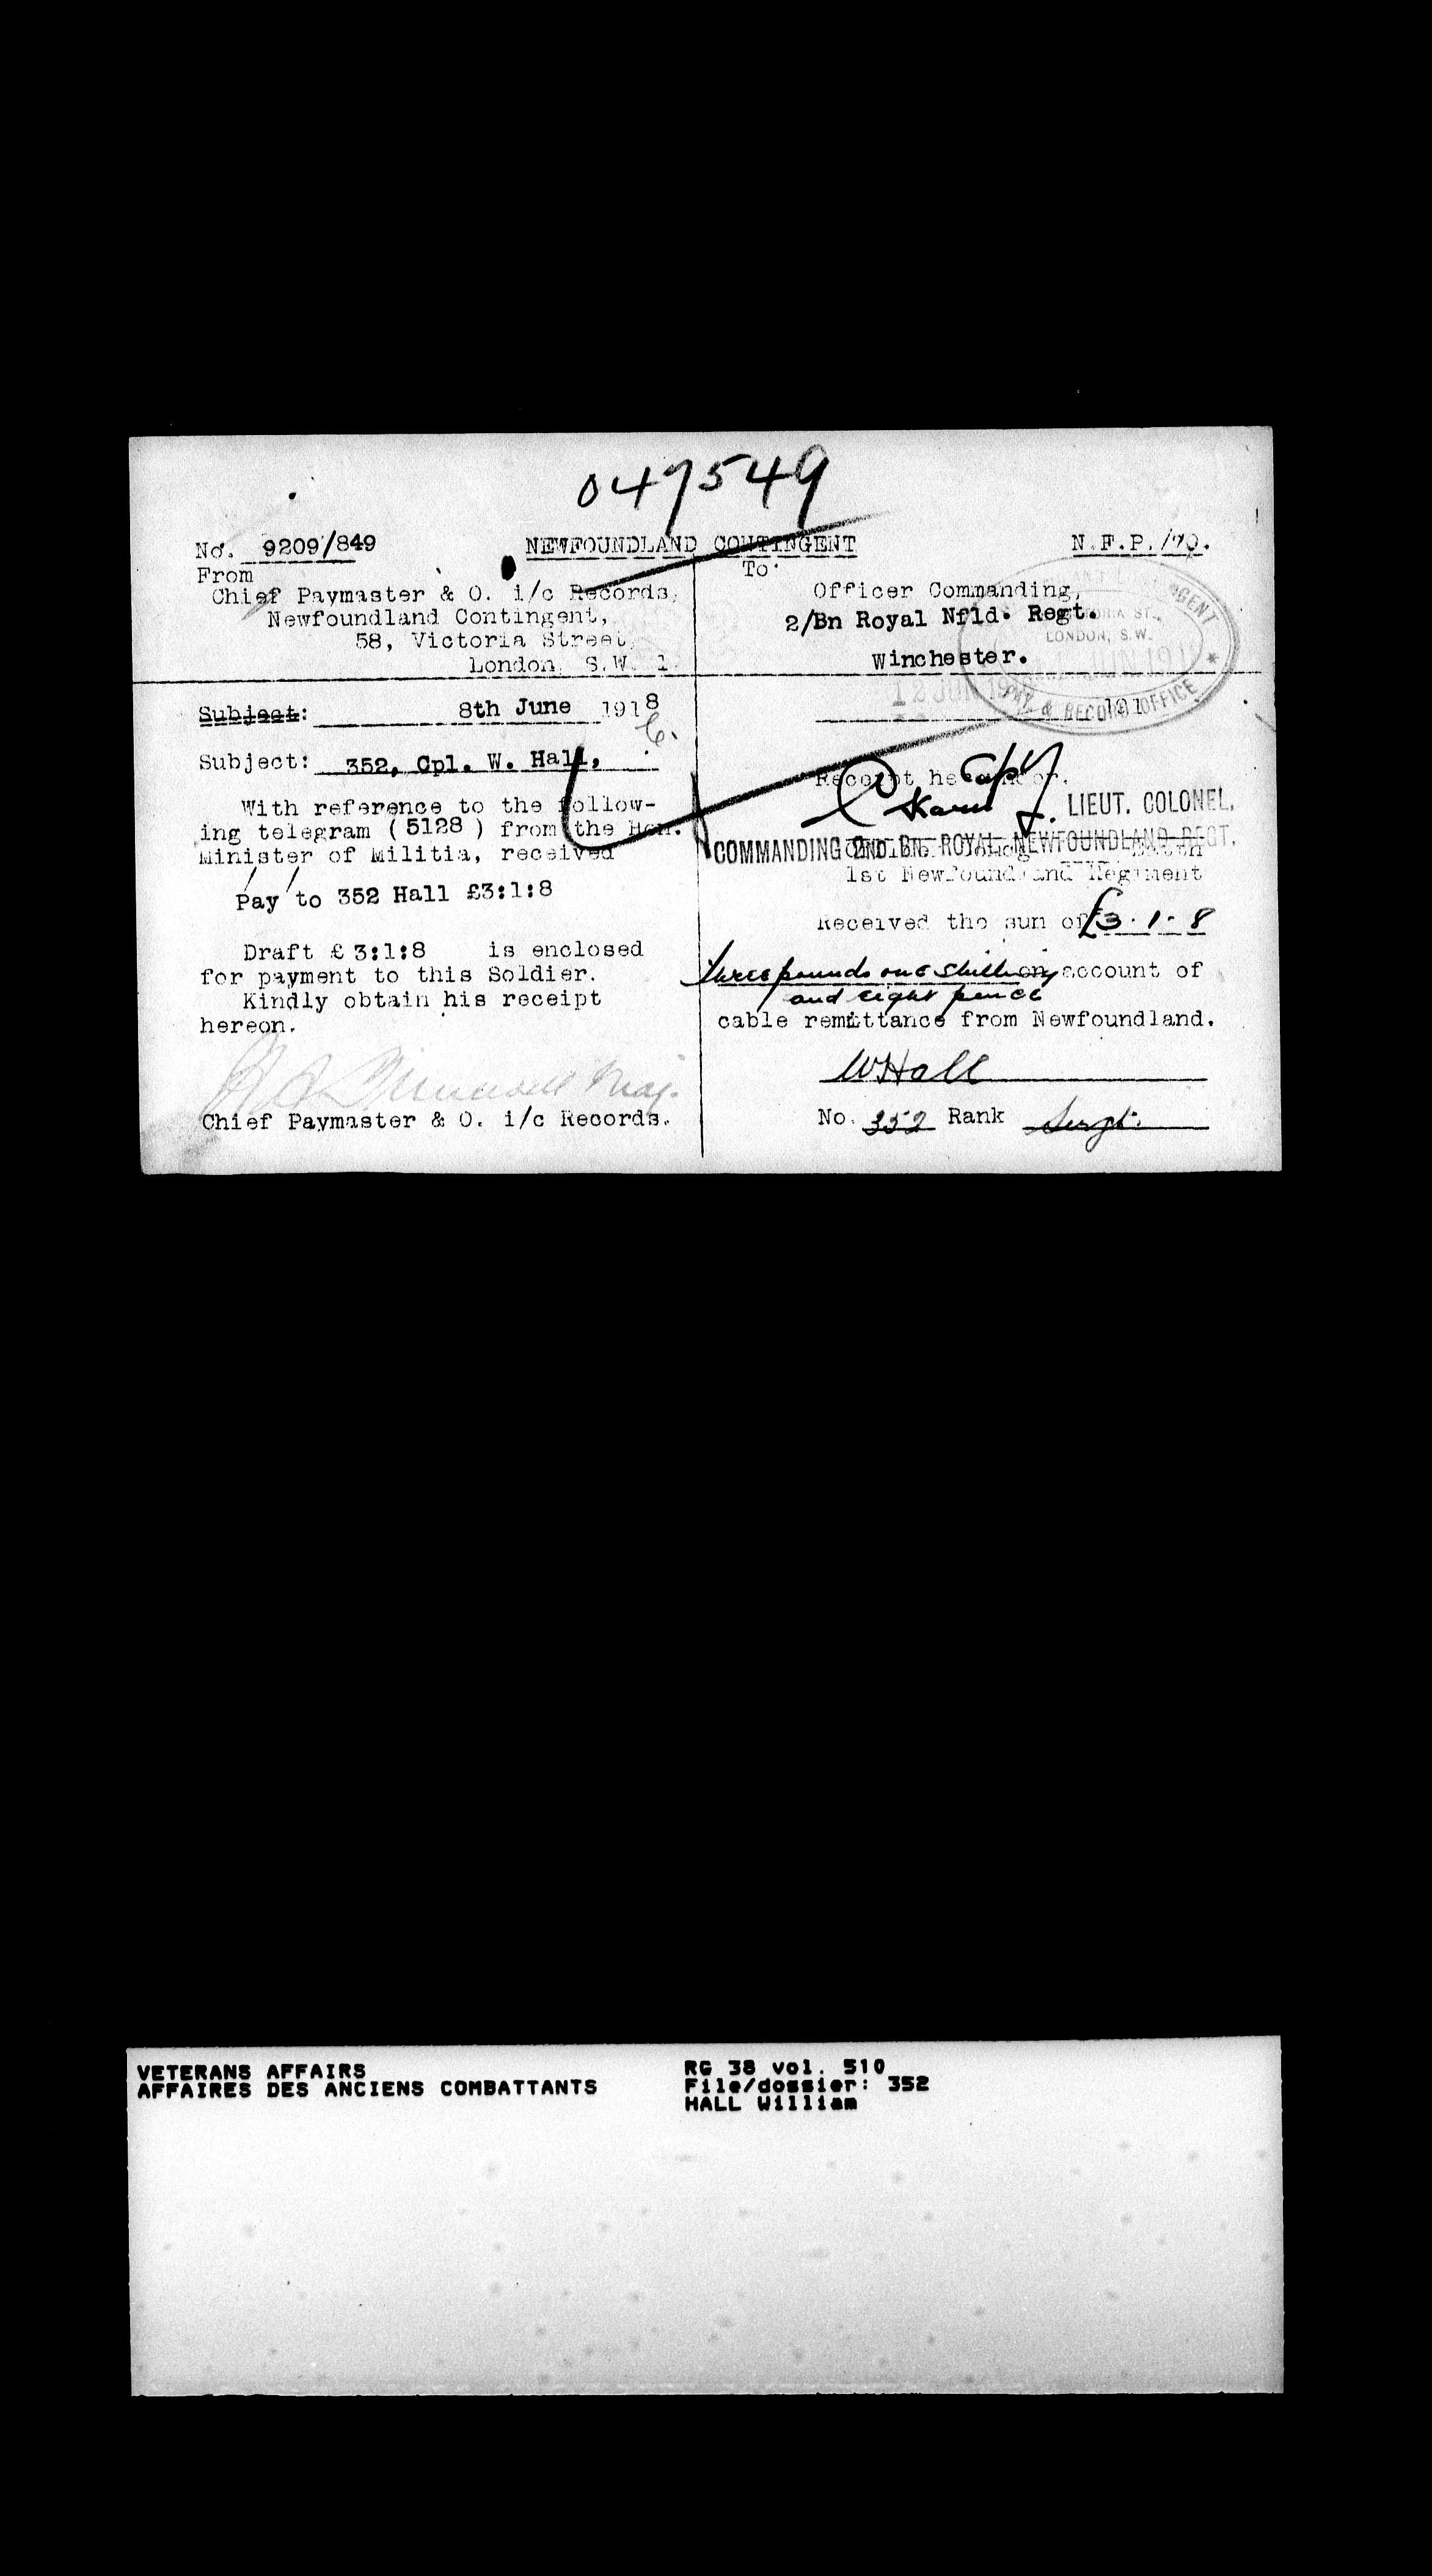 047549
No. 9209/849
NEWFOUNDLAND CONTINGENT
N.F.P./79.
From
Chief Paymaster & O. i/c Records,
Newfoundland Contingent,
58, Victoria Street,
London, S.W. 1.
To
Officer Commanding,
2/Bn Royal Nfld. Regt.
Winchester.
LONDON, S.W.
12 JUN 191
PAY & RECORD OFFICE
Subject: 8th June 1918
Subject: 352, Cpl. W. Hall,
With reference to the follow-
ing telegram (5128) from the Hon.
Minister of Militia, received
Pay to 352 Hall £3:1:8
Draft £ 3:1:8 is enclosed
for payment to this Soldier.
Kindly obtain his receipt
hereon.
Maj.
Chief Paymaster & O. i/c Records.
191
Receipt hereunder.
Capt
LIEUT. COLONEL,
COMMANDING 2ND. BN. ROYAL NEWFOUNDLAND REGT.
1st Newfoundland Regiment
Received the sum of £3.1.8
three pounds one shilling on account of
and eight pence
cable remittance from Newfoundland.
W Hall
No. 352 Rank Sergt.
VETERANS AFFAIRS
AFFAIRES DES ANCIENS COMBATTANTS
RG 38 vol. 510
File/dossier: 352
HALL William